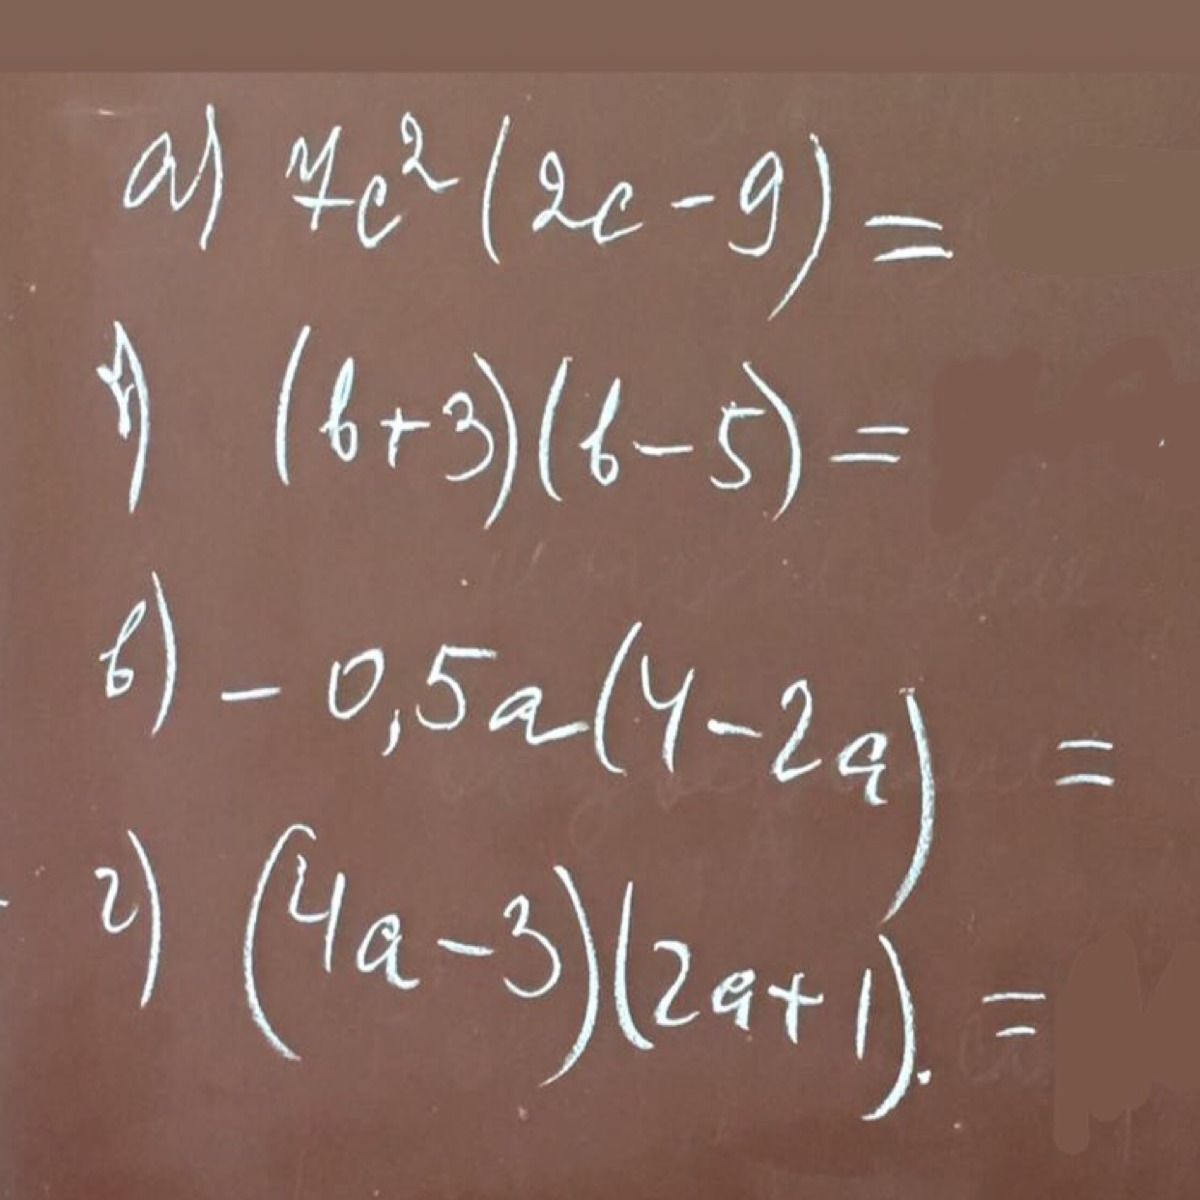 а) 7c²(2c-9)=
б) (b+3)(b-5)=
в) -0,5a(4-2a) =
г) (4a-3)(2a+1). =